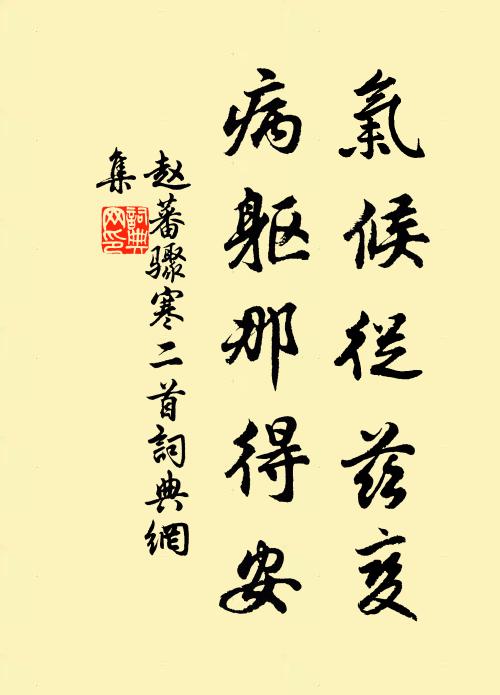 氣候從茲变
病軀那得安
赵蕃驟寒二首詞典網
集
詞典
网印